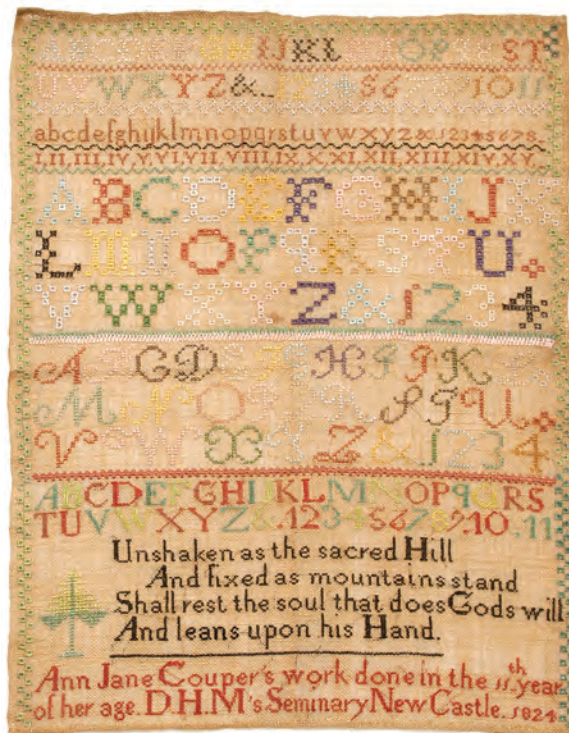 ABCDEFGHIJKL OPqR ST
UVWXYZ&. 12345678 1011
abcdefghijklmnopqrstuvwxyz&12345678.
I,II,III,IV,V,VI,VII,VIII,IX,X,XI,XII,XIII,XIV,XV,
ABCDEFGHIJK
LMNOPqRSTU
VWXYZ&1234
A GD F HIJK
MNO R STU
V W X Z&1234
ABCDEFGHIJKLMNOPqRS
TUVWXYZ&.123456789.10.11
Unshaken as the sacred Hill
And fixed as mountains stand
Shall rest the soul that does Gods will
And leans upon his Hand.
Ann Jane Couper's work done in the 11th year
of her age. D.H.M's Seminary New Castle. 1824